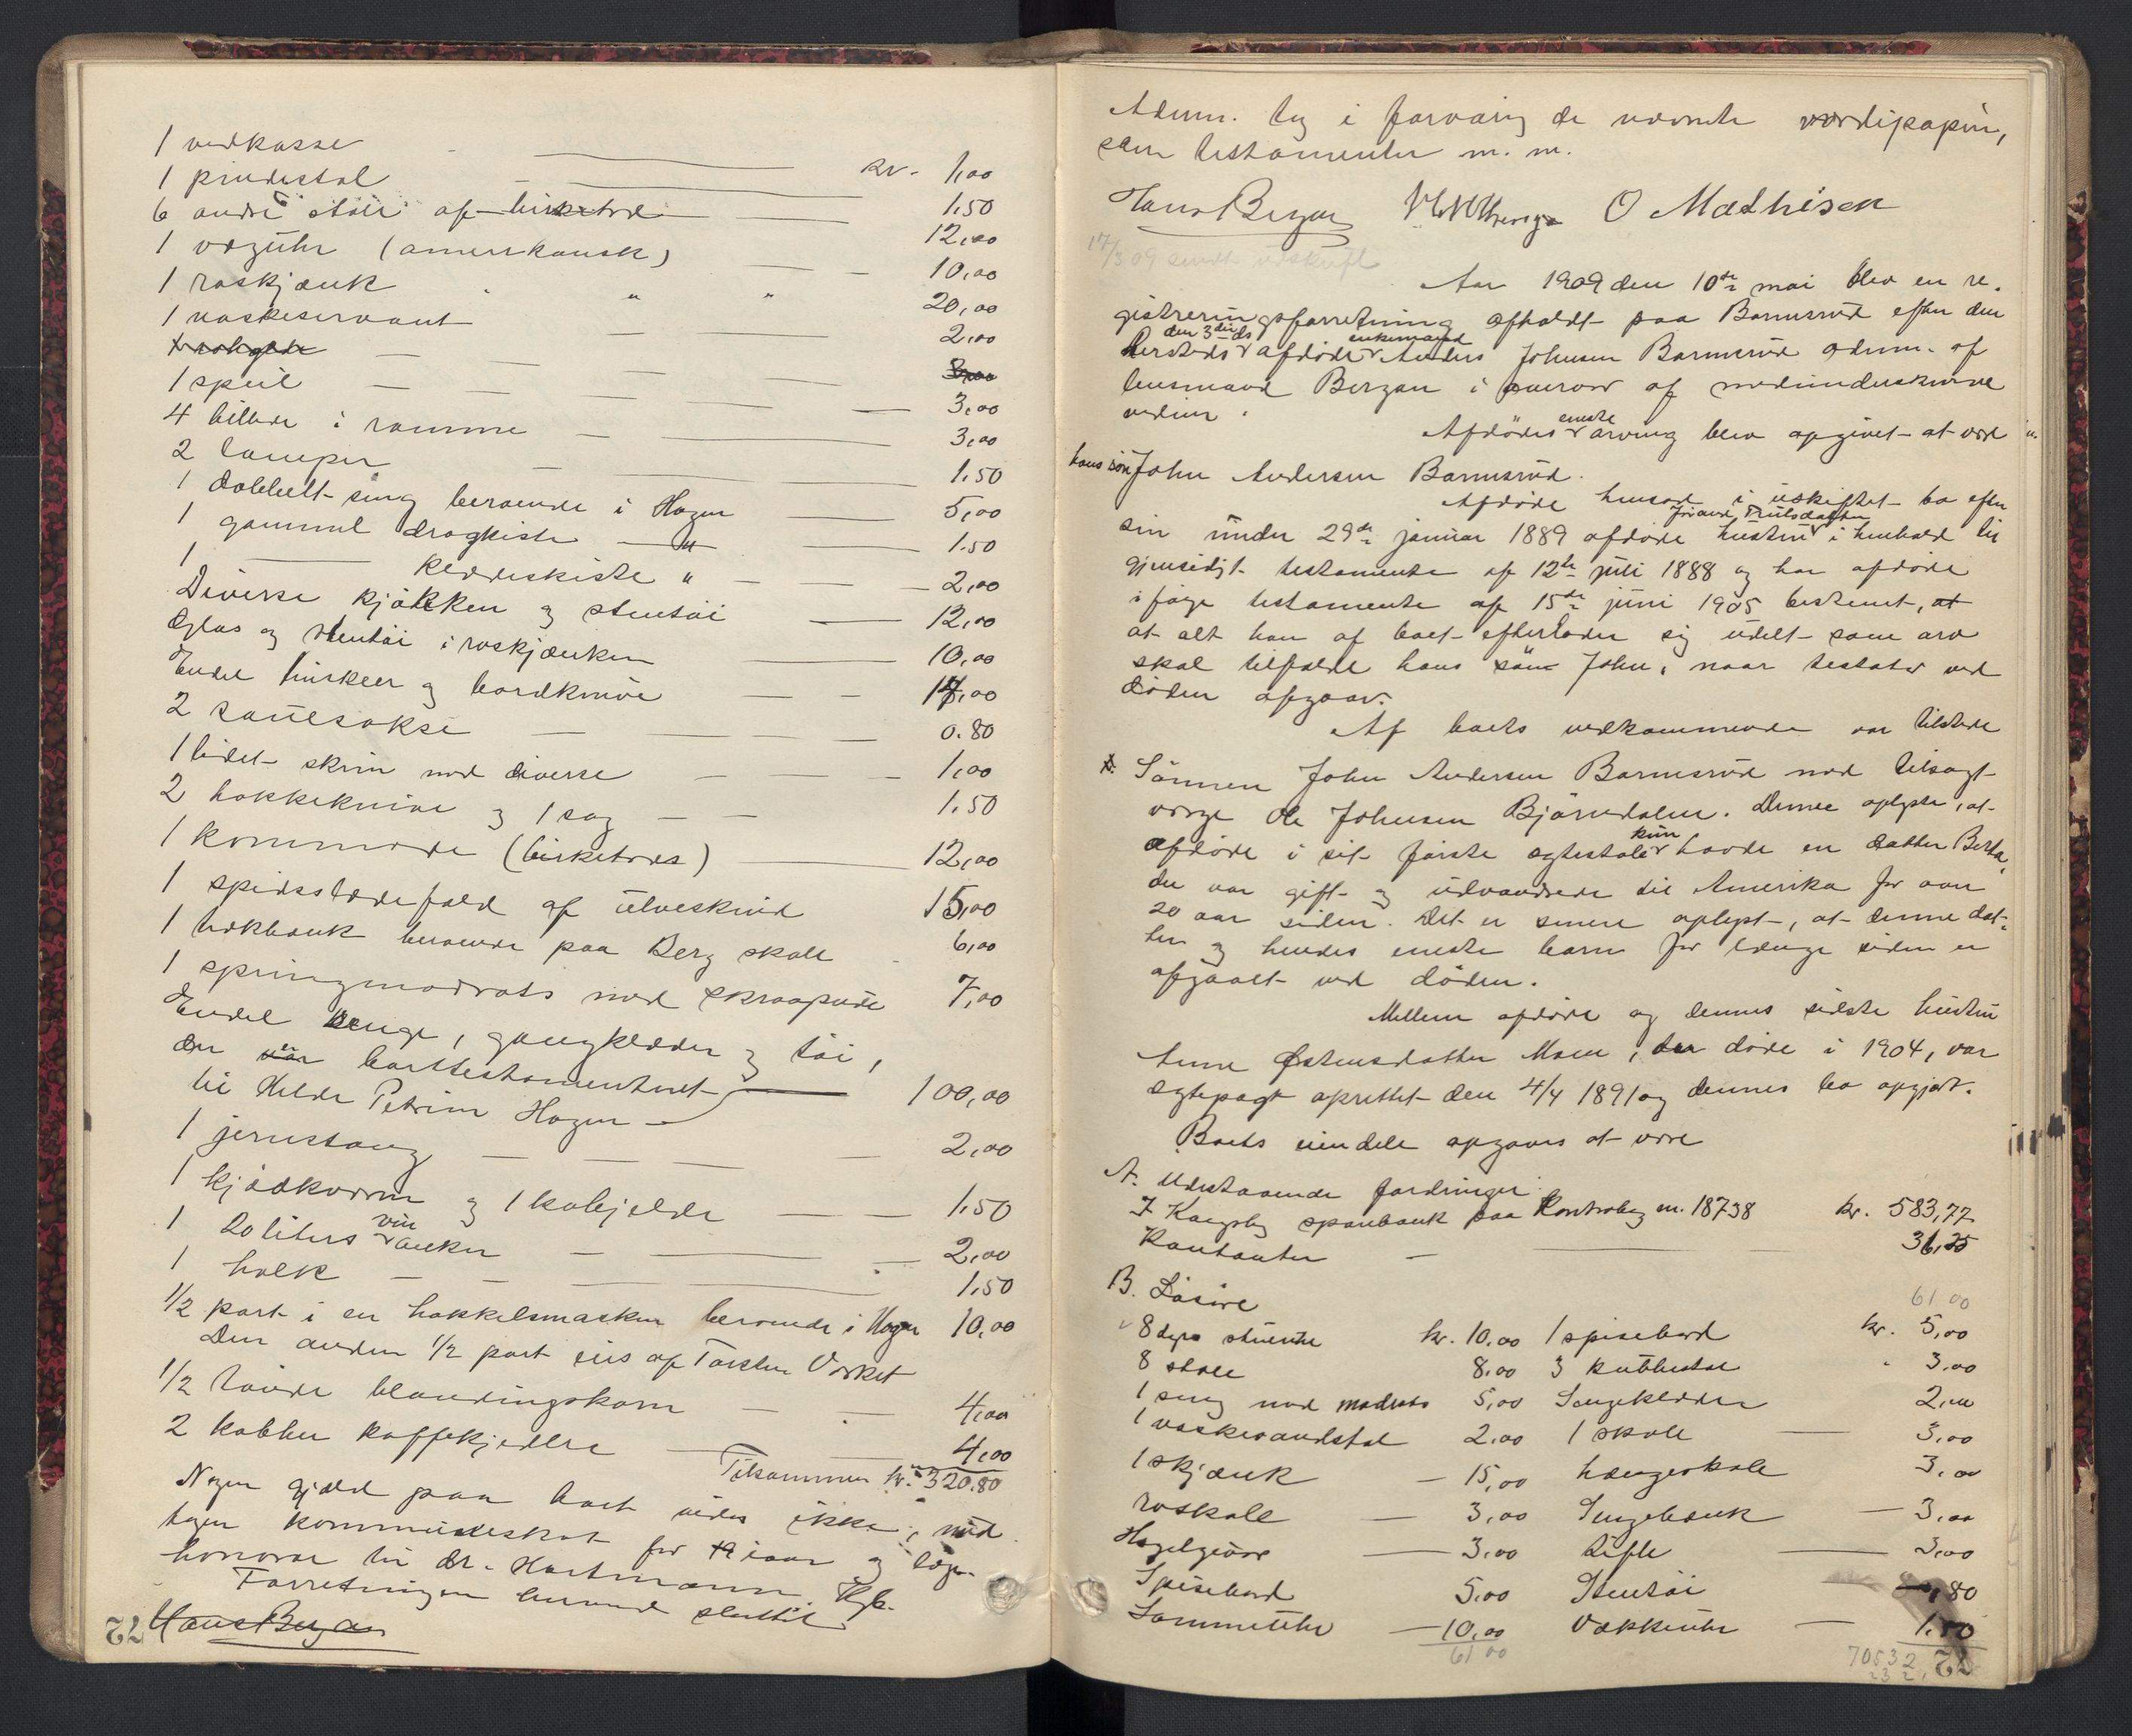 1 vedkasse kr. 1,00
1 pindestol 1.50
6 andre stole af birketræ 12,00
1 væguhr (amerikansk) 10,00
1 roskjænk " " 20,00
1 vaskeservant 2,00
1 speil 3,00
4 billeder i ramme 3,00
2 lamper 1.50
1 dobbelt seng beroende i Hagen 5,00
1 gammel dragkiste " 1.50
1 klædeskiste " 2,00
Diverse kjøkken og stentøi 12,00
Glas og stentøi i roskjænken 10,00
Endel hinker og bordknive
2 sauesakse 0.80
1 lidet skrin med diverse 1,00
2 hakkeknive og 1 sag 1.50
1 kommode (birketræs) 12,00
1 spidsslædefæld af ulveskind 15,00
1 høvlbænk beroende paa Berg skole 6,00
1 springmadrats med skraapude 7,00
Endel senge, gangklæder og tøi,
der er borttestamenteret 100,00
til Helde Petrine Hagen
1 jernstang 2,00
1 kjødkværn og 1 kobjelde 1.50
1 20 liters vin anker 2,00
1 holk 1,50
1/2 part i en hakkelsmaskin beroende i Hagen 10,00
Den anden 1/2 part eies af Torsten Virket
1/2 tønde blandingskorn 4,00
2 kobber kaffekjedler 4,00
Tilsammen kr. 320.80
Nogen gjæld paa boet vides ikke, und
tagen kommuneskat for iaar og læge-
honorar til dr. Hartmann Kgb.
Forretningen hermed sluttet
Hans Bergan
72
Adm. tog i forvaring de nævnte værdipapir,
samt testamenter m. m.
Hans Bergan O Mathisen
17/5 09 sendt udskrift
Aar 1909 den 10de mai blev en re-
gistreringsforretning afholdt paa Barmsrud efter den
den 3die ds enkemand
hersteds afdøde Anders Johnsen Barmsrud adm. af
lensmand Bergan i overvær af medunderskrevne
vidner.
eneste
Afdødes arving blev opgivet at være
hans søn John Andersen Barmsrud.
Afdøde hensad i uskiftet bo efter
sin under 29de januar 1889 afdøde hustru Trulsdatter i henhold til
gjensidigt testamente af 12te juli 1888 og har afdøde
ifølge testamente af 15de juni 1905 bestemt, at
at alt han af boet efterlader sig udelt som arv
skal tilfalde hans søn John, naar testator ved
døden afgaar.
Af boets vedkommende var tilstede
Sønnen John Andersen Barmsrud med tilsagt
værge Ole Johnsen Bjørndalen. Denne oplyste, at
kun
afdøde i sit første egteskab havde en datter Berta,
der var gift og udvandrede til Amerika for over
20 aar siden. Det er senere oplyst, at denne dat-
ter og hendes eneste barn for længe siden er
afgaaet ved døden.
Mellem afdøde og dennes sidste hustru
Anne Østensdatter Moen, der døde i 1904, var
egtepagt oprettet den 4/4 1891 og dennes bo opgjort.
Boets eiendele opgaves at være
A. Udestaaende fordringer
I Kongsberg sparebank paa Kontrabog nr. 18738 kr. 583,77
Kontanter 36,25
B. Løsøre 61 00
8 dyrs stuenhr kr. 10.00 1 spisebord kr. 5,00
8 stole 8.00 3 kubbestol 3.00
1 seng med madrats 5,00 Sengeklæder 2,00
1 vaskevandstol 2.00 1 skole 3,00
1 skjænk 15,00 hængeskole 3,00
roskole 3,00 Sengebænk 3,00
Hagelgevær 3.00 3,00
Spisebord 5.00 Stentøi 80
Lommeuhr 10.00 Vækkeuhr 1.50
61 00
705 32
72